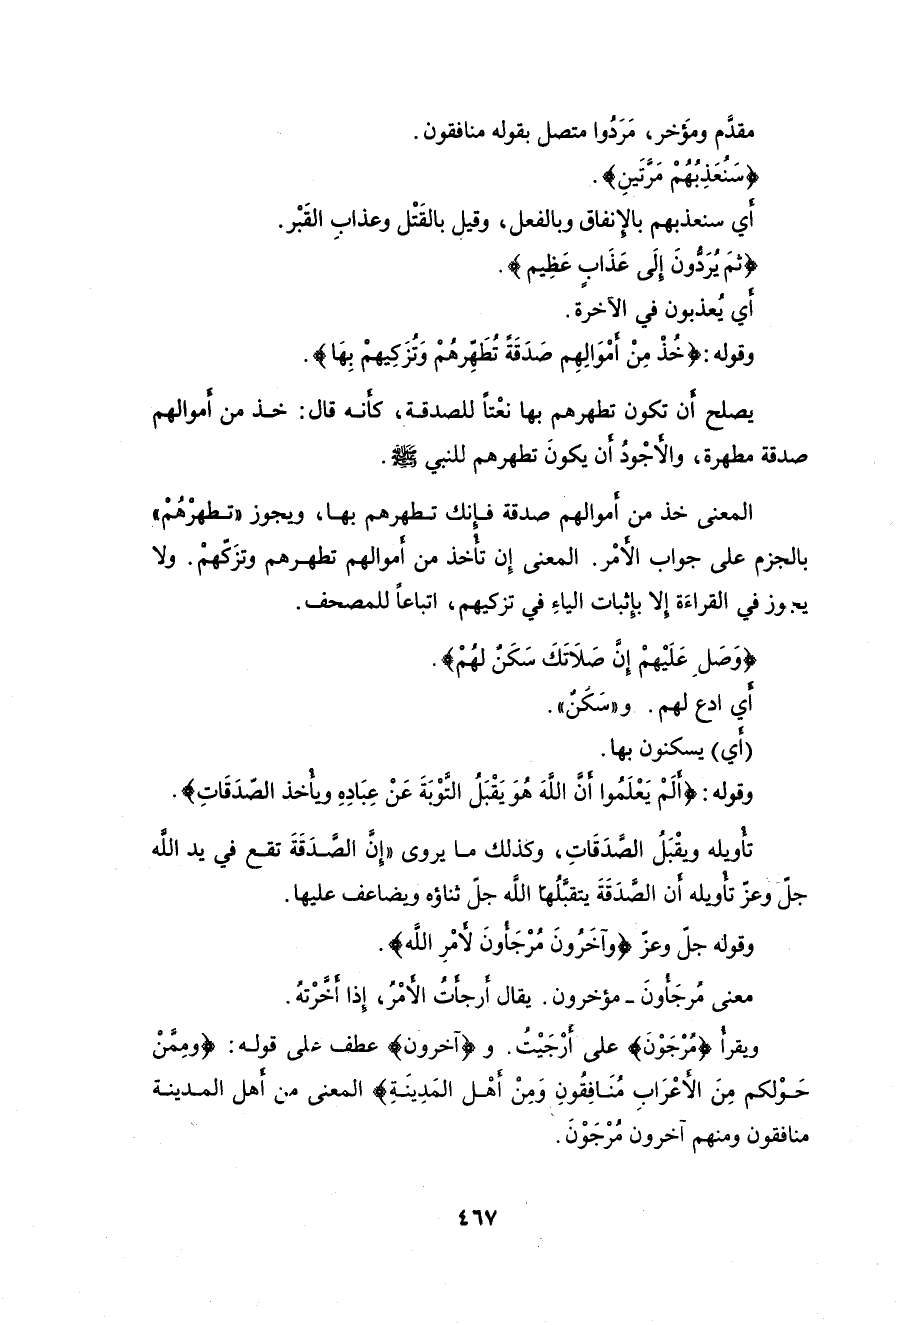 مقدَّم ومؤَخر، مَرَدُوا متصل بقوله منافقون.
﴿سَنُعَذِبُهُمْ مَرَّتَينِ﴾.
أَي سنعذبهم بالإنفاق وبالفعل، وقيل بالقَتْل وعذابِ القَبْر.
﴿ثمَ يُرَدُّونَ إِلَى عَذَابٍ عَظِيم﴾.
أَي يُعذبون في الآخرة.
وقوله: ﴿خُذْ مِنْ أَمْوَالِهِم صَدَقَةً تُطَهِّرهُمْ وَتُزَكِيهمْ بِهَا﴾.
يصلح أَن تكون تطهرهم بها نعْتاً للصدقة، كأَنه قال: خذ من أَموالهم
صدقة مطهرة، والأَجْودُ أَن يكونَ تطهرهم للنبي ﷺ.
المعنى خذ من أَموالهم صدقة فإِنك تطهرهم بها، ويجوز «تطهرْهُمْ»
بالجزم على جواب الأَمْر. المعنى إِن تأْخذ من أَموالهم تطهرهم وتزَكّهمْ. ولا
يجوز في القراءَة إِلا بإِثبات الياءِ في تزكيهم، اتباعاً للمصحف.
﴿وَصَلِ عَلَيْهمْ إِنَّ صَلَاتَكَ سَكَنٌ لهُمْ﴾.
أَي ادع لهم. و«سَكَنٌ».
(أَي) يسكنون بها.
وقوله: ﴿أَلَمْ يَعْلَمُوا أَنَّ اللَّهَ هُوَ يَقْبَلُ التَّوْبَةَ عَنْ عِبَادِهِ ويأْخذ الصّدَقَاتِ﴾.
تأْويله ويقْبَلُ الصَّدَقَاتِ، وكذلك ما يروى «إِنَّ الصَّدَقَةَ تقع في يد اللَّه
جلّ وعزّ تأْويله أَن الصَّدَقَةَ يتقبَّلُها اللَّه جلّ ثناؤه ويضاعف عليها.
وقوله جلّ وعزّ ﴿وآخَرُونَ مُرْجَأُونَ لأَمْرِ اللَّه﴾.
معنى مُرجَأُونَ - مؤخرون. يقال أَرجأتُ الأَمْرُ، إِذا أَخَّرْتهُ.
ويقرأُ ﴿مُرْجَوْنَ﴾ على أَرْجَيْتُ. و ﴿آخرون﴾ عطف على قوله: ﴿ومِمَّنْ
حَوْلكم مِنَ الأَعْرَابِ مُنَافِقُونِ وَمِنْ أَهْلِ المَدِينَةِ﴾ المعنى من أَهل المدينة
منافقون ومنهم آخرون مُرْجَوْنَ.
٤٦٧